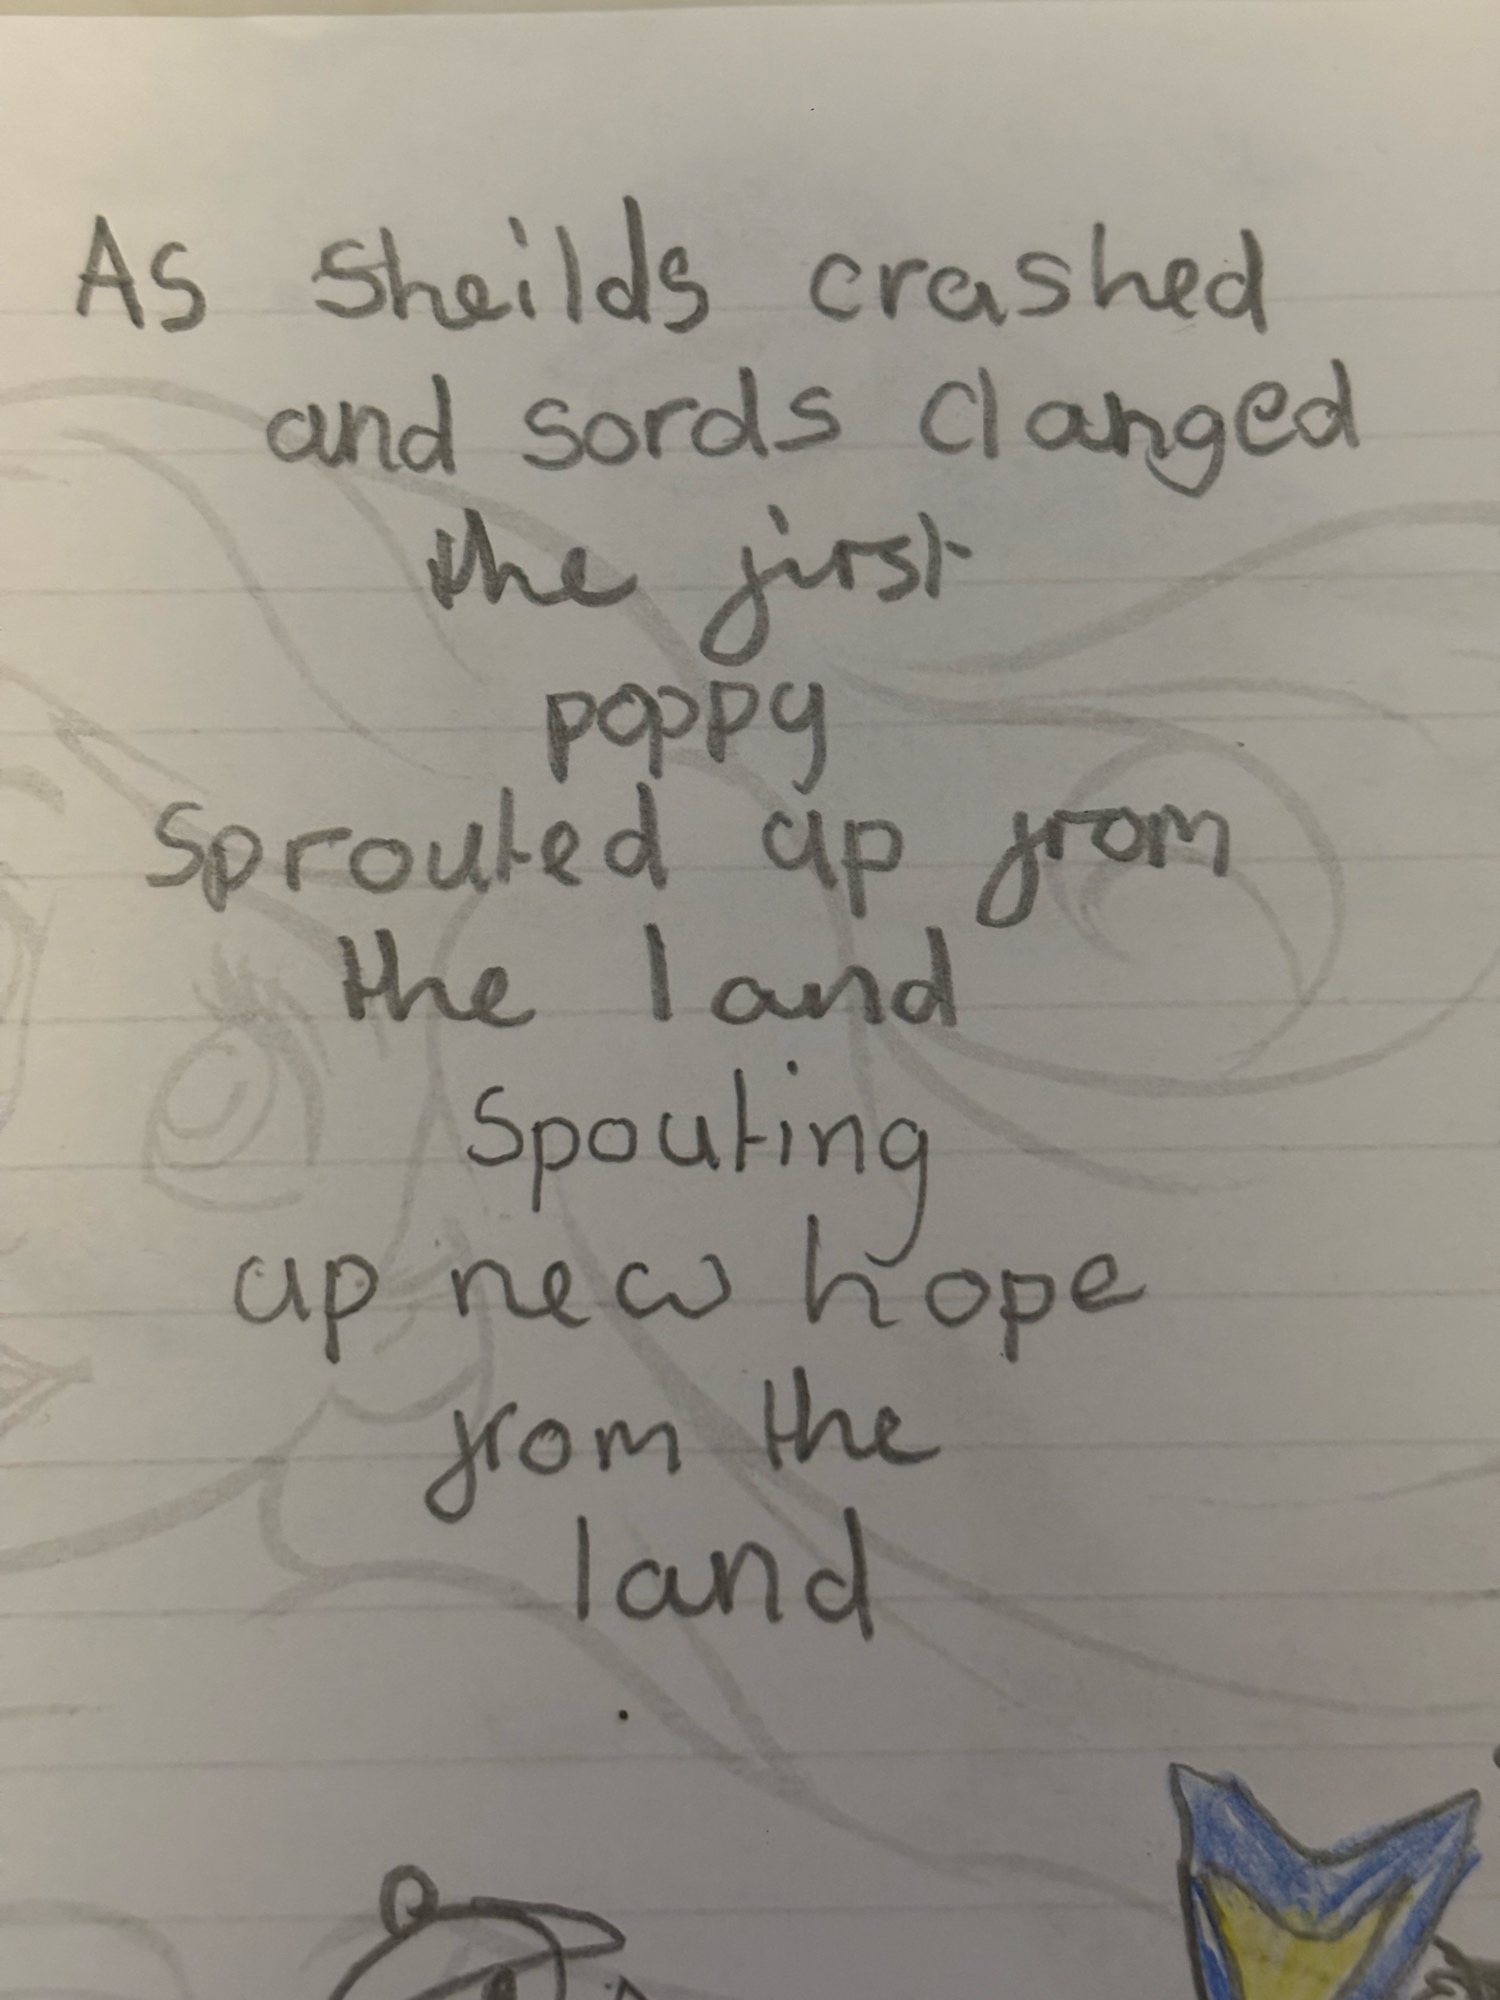 As Sheilds crashed
and sords clanged
the first
poppy
Sprouted up from
the land
Spouting
up new hope
from the
land